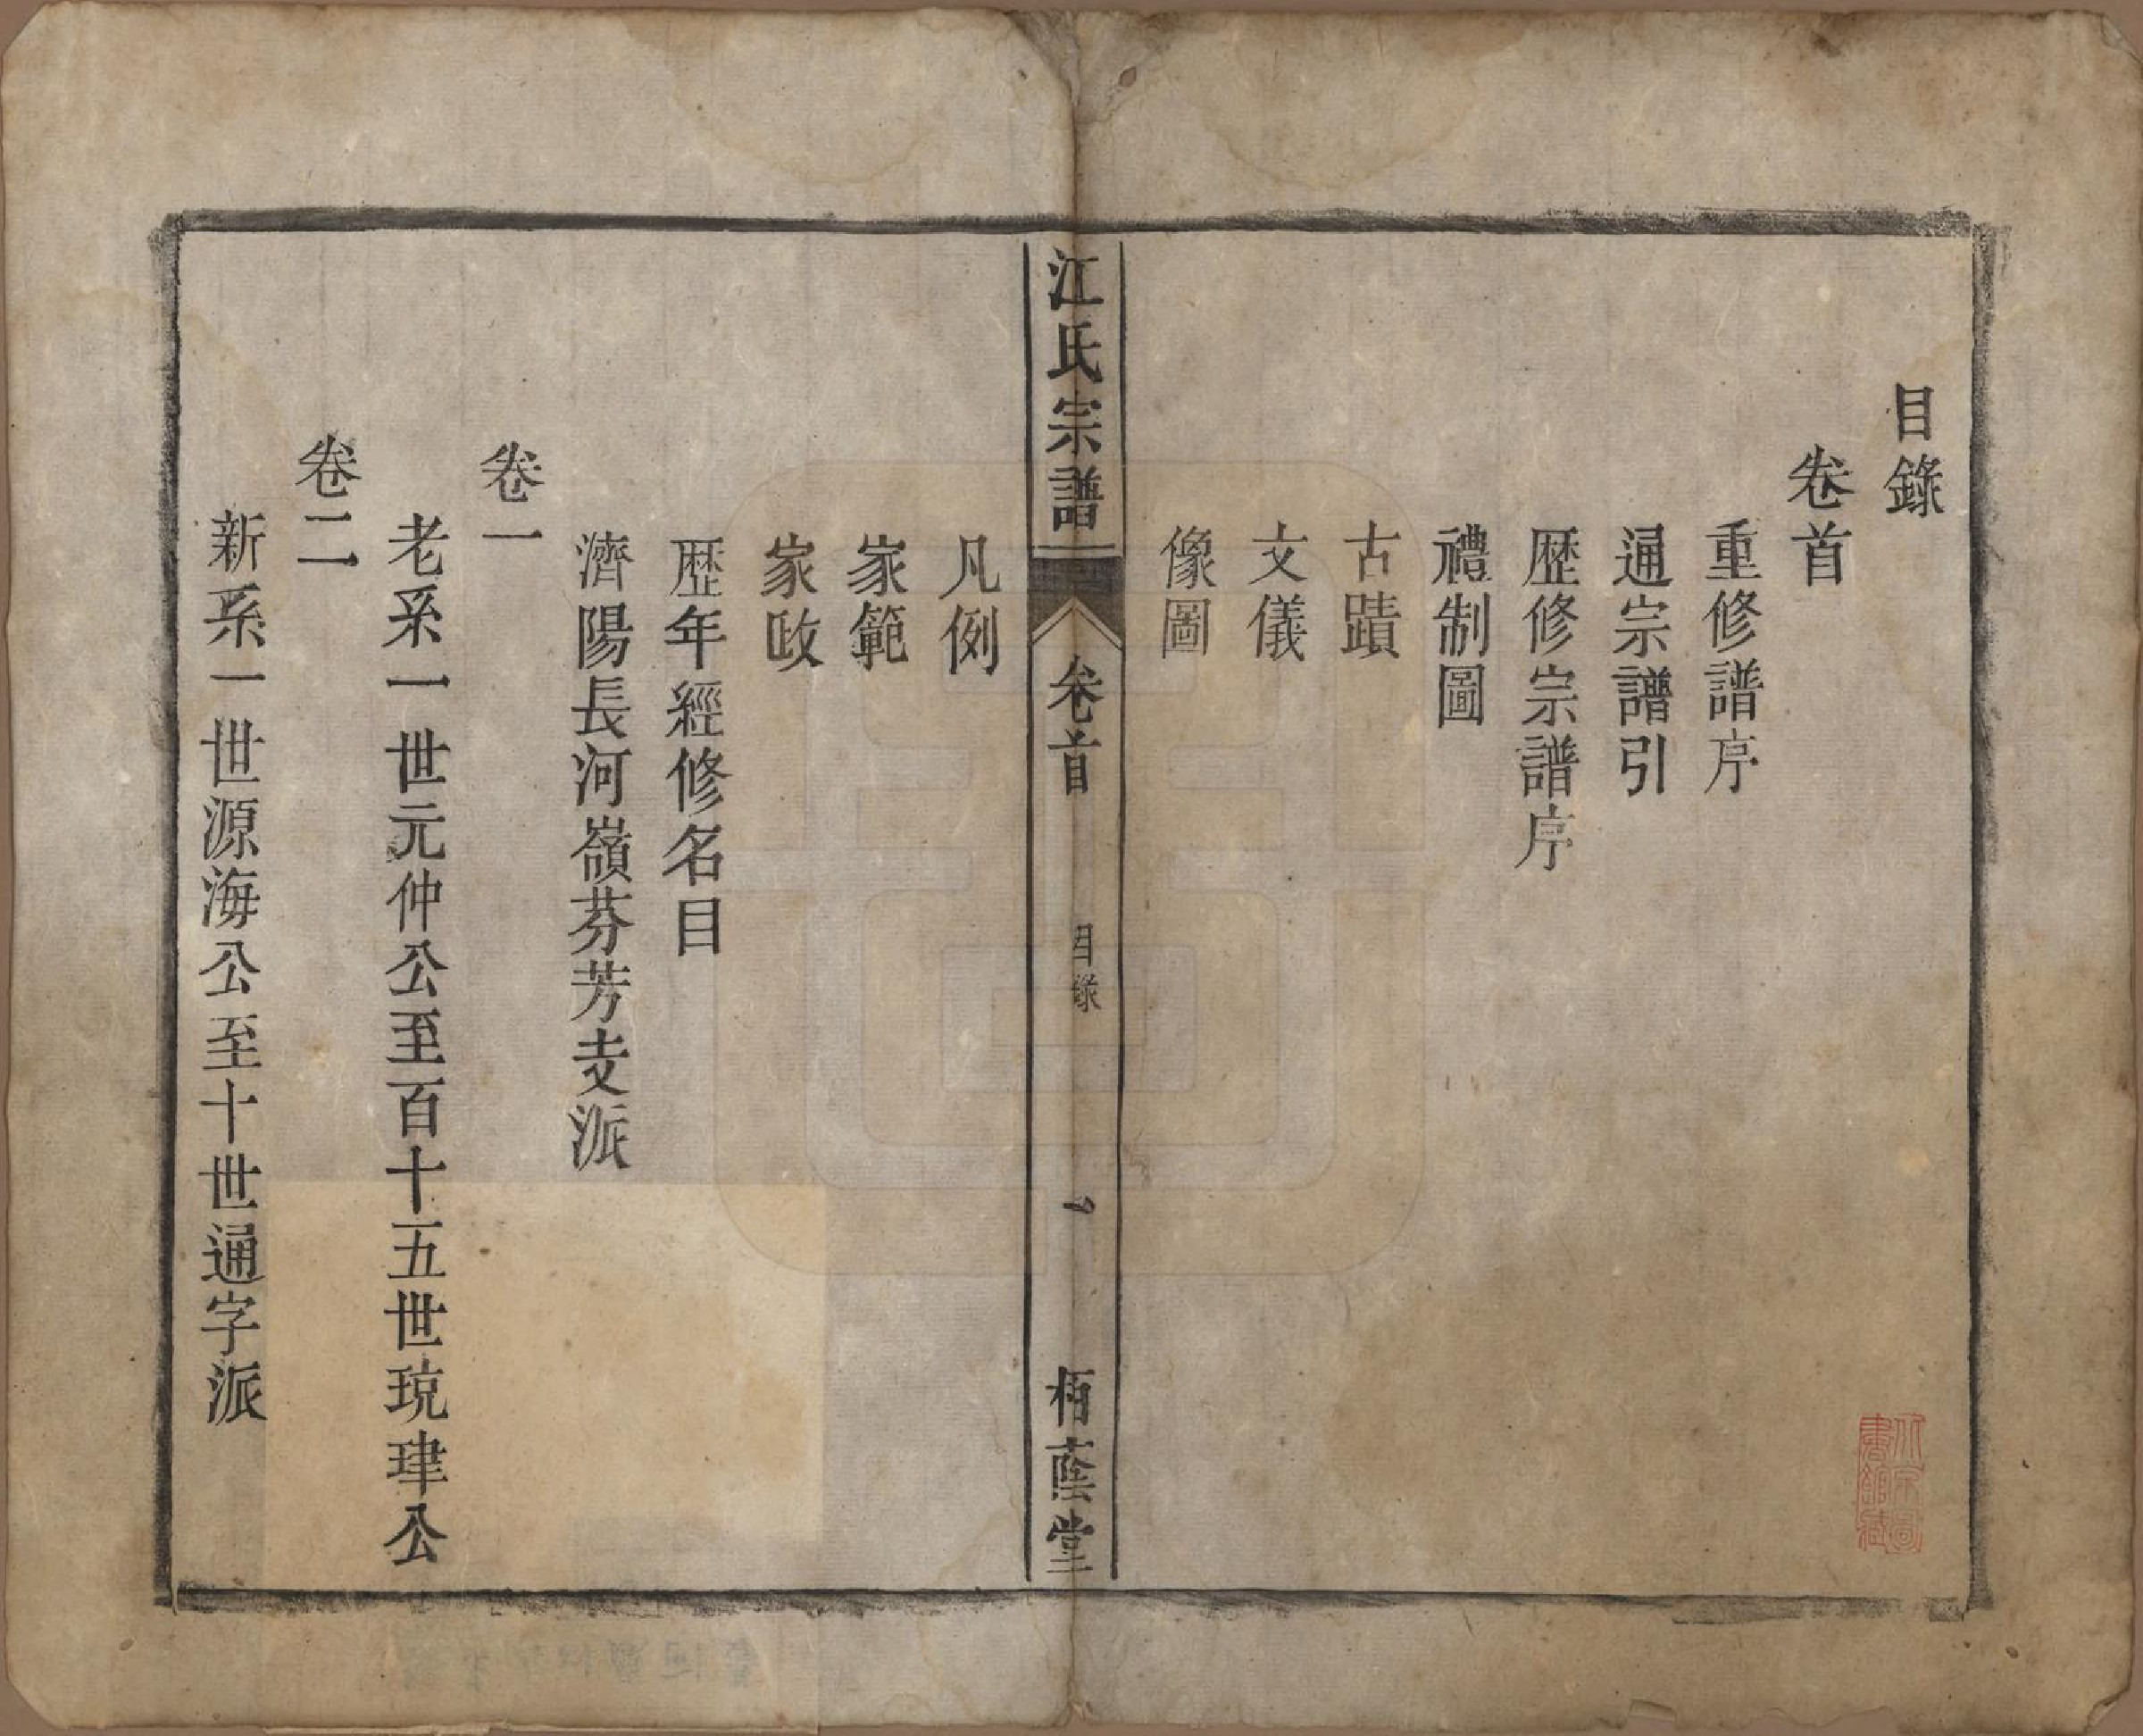 目錄
卷首
重修譜序
通宗譜引
歷修宗譜序
禮制圖
古蹟
文儀
像圖
江氏宗譜
卷首
目錄
一
栢蔭堂
凡例
家範
家政
歷年經修名目
濟陽長河嶺芬芳支派
卷一
老系一世元仲公至百十五世琓珒公
卷二
新系一世源海公至十世通字派